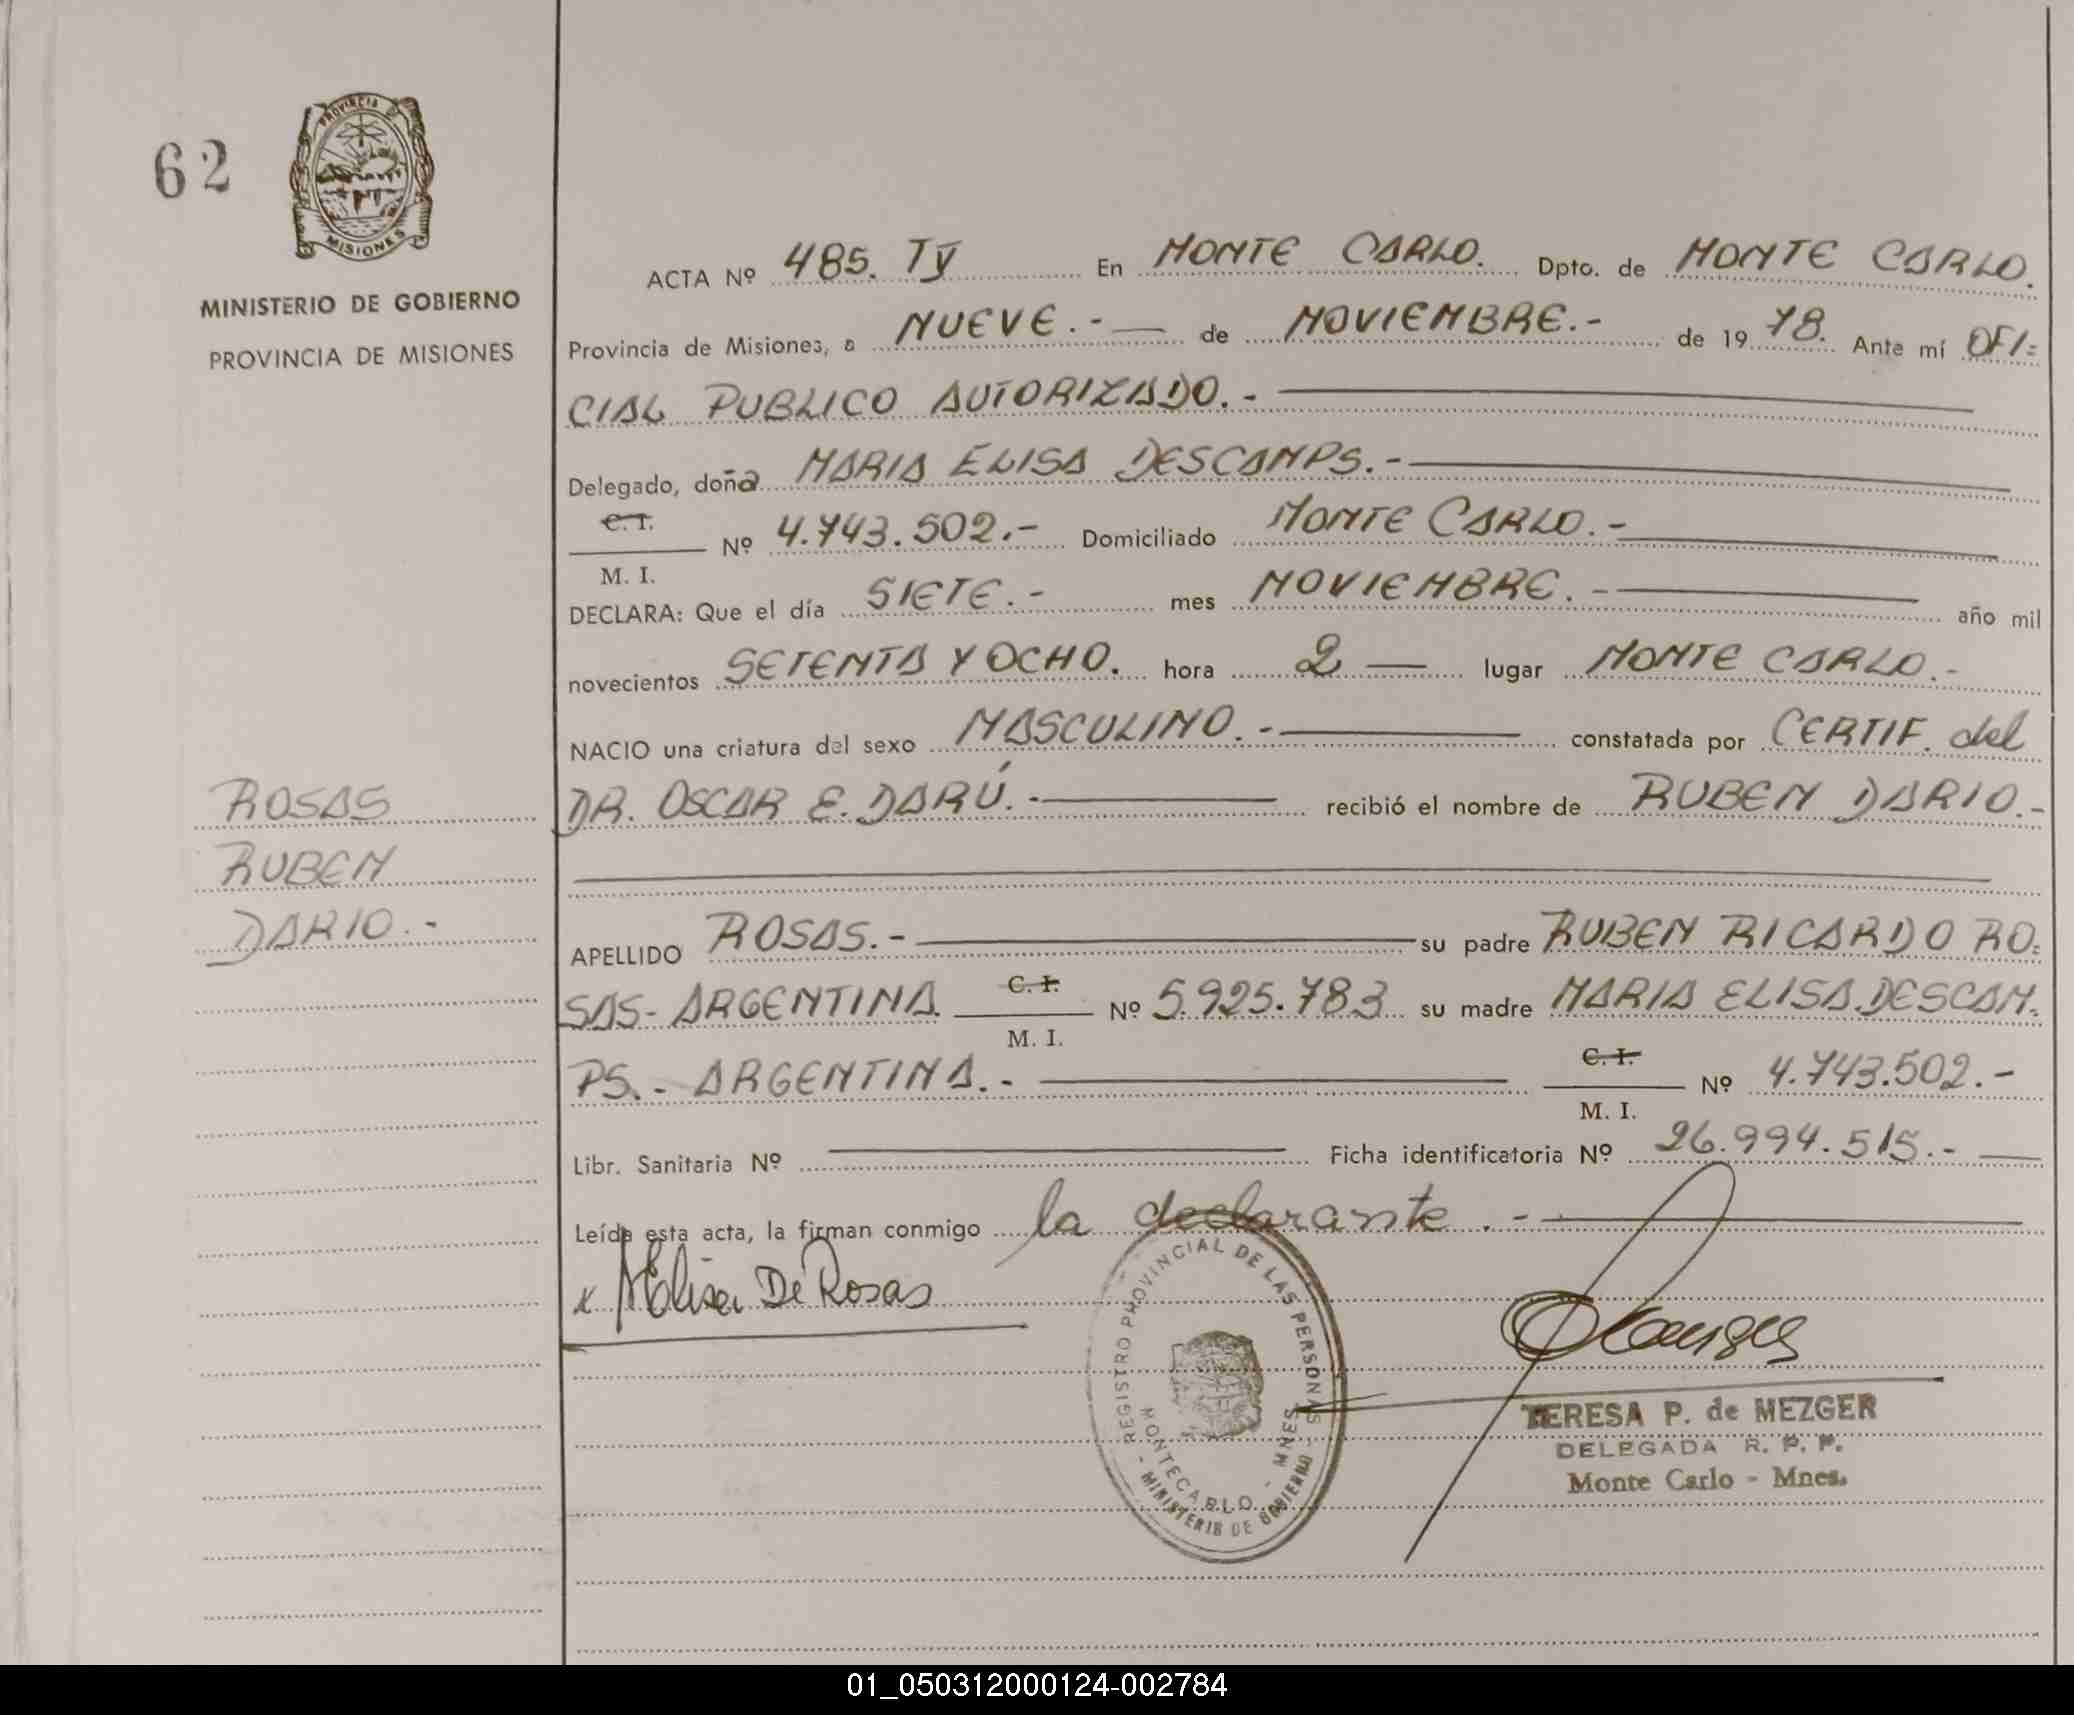 62
PROVINCIA DE
MISIONES
MINISTERIO DE GOBIERNO
PROVINCIA DE MISIONES
ROSAS
RUBEN
DARIO.-
ACTA Nº 485. Tº V En MONTE CARLO. Dpto. de MONTE CARLO.
Provincia de Misiones, a NUEVE.- de NOVIEMBRE.- de 1978. Ante mí OFI=
CIAL PUBLICO AUTORIZADO.-
Delegado, doña MARIA ELISA DESCAMPS.-
C. I.
Nº 4.743.502.- Domiciliado MONTE CARLO.-
M. I.
DECLARA: Que el día SIETE.- mes NOVIEMBRE.- año mil
novecientos SETENTA Y OCHO. hora 2 lugar MONTE CARLO.-
NACIO una criatura del sexo MASCULINO.- constatada por CERTIF. del
DR. OSCAR E. DARÚ.- recibió el nombre de RUBEN DARIO.-
APELLIDO ROSAS.- su padre RUBEN RICARDO RO=
SAS- ARGENTINA. C. I. Nº 5.925.783 su madre MARIA ELISA DESCAM=
M. I.
PS.- ARGENTINA.- C. I. Nº 4.743.502.-
M. I.
Libr. Sanitaria Nº Ficha identificatoria Nº 26.994.515.-
Leída esta acta, la firman conmigo la declarante.-
x MElisa De Rosas
REGISTRO PROVINCIAL DE LAS PERSONAS
MONTECARLO - MNES.
- MINISTERIO DE GOBIERNO -
TERESA P. de MEZGER
DELEGADA R. P. P.
Monte Carlo - Mnes.
01_050312000124-002784